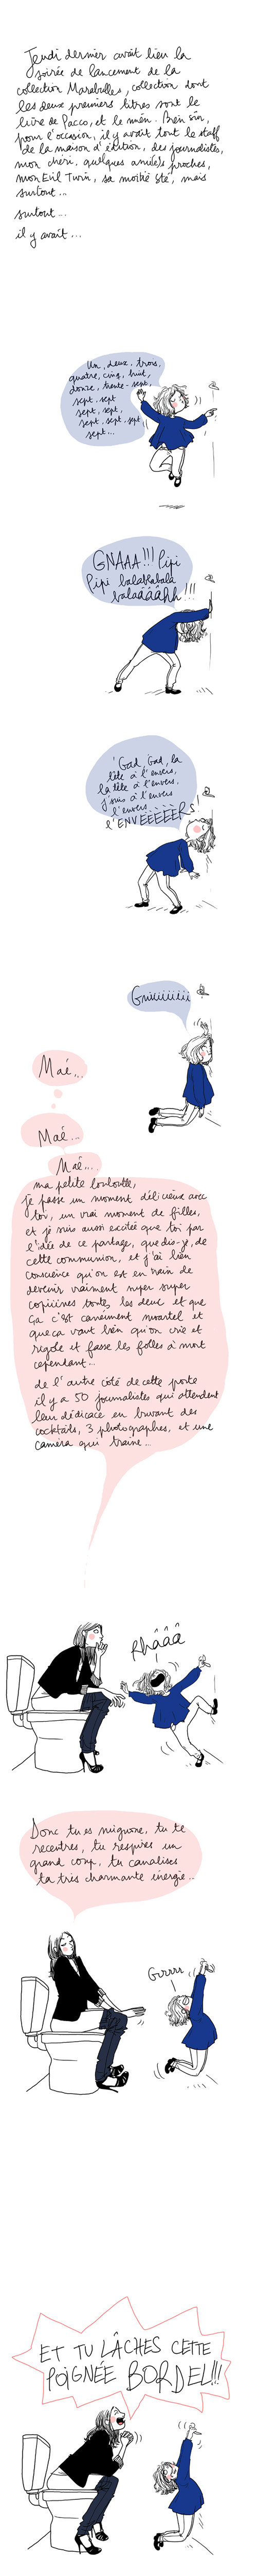 Jeudi dernier avait lieu la
soirée de lancement de la
collection Marabulles, collection dont
les deux premiers titres sont le
livre de Pacco, et le mien. Bien sûr,
pour l'occasion, il y avait tout le staff
de la maison d'édition, des journalistes,
mon chéri, quelques ami(e)s proches,
mon Evil Twin, sa moitié Sté, mais
surtout...
surtout...
il y avait...
Un, deux, trois,
quatre, cinq, huit,
douze, trente-sept,
sept, sept
sept, sept,
sept, sept, sept,
sept...
GNAAA!!! Pipi
Pipi balablabala
balaaâââhh!!!
Gad, Gad, la
tête à l'envers,
la tête à l'envers.
j'suis à l'envers
l'envers...
l'ENVEEÈÈÈRS!
Gniiiiiiiiii
Maé...
Maé...
Maé...
ma petite louloutte,
je passe un moment délicieux avec
toi, un vrai moment de filles,
et je suis aussi excitée que toi par
l'idée de ce partage, que dis-je, de
cette communion, et j'ai bien
conscience qu'on est en train de
devenir vraiment super super
copiiines toutes les deux et que
ça c'est carrément mortel et
que ça vaut bien qu'on crie et
rigole et fasse les folles à mort
cependant...
de l'autre côté de cette porte
il y a 50 journalistes qui attendent
leur dédicace en buvant des
cocktails, 3 photographes, et une
caméra qui traine...
Rhâââ
Donc tu es mignonne, tu te
recentres, tu respires un
grand coup, tu canalises
ta très charmante énergie...
Grrrr
ET TU LÂCHES CETTE
POIGNÉE BORDEL!!!